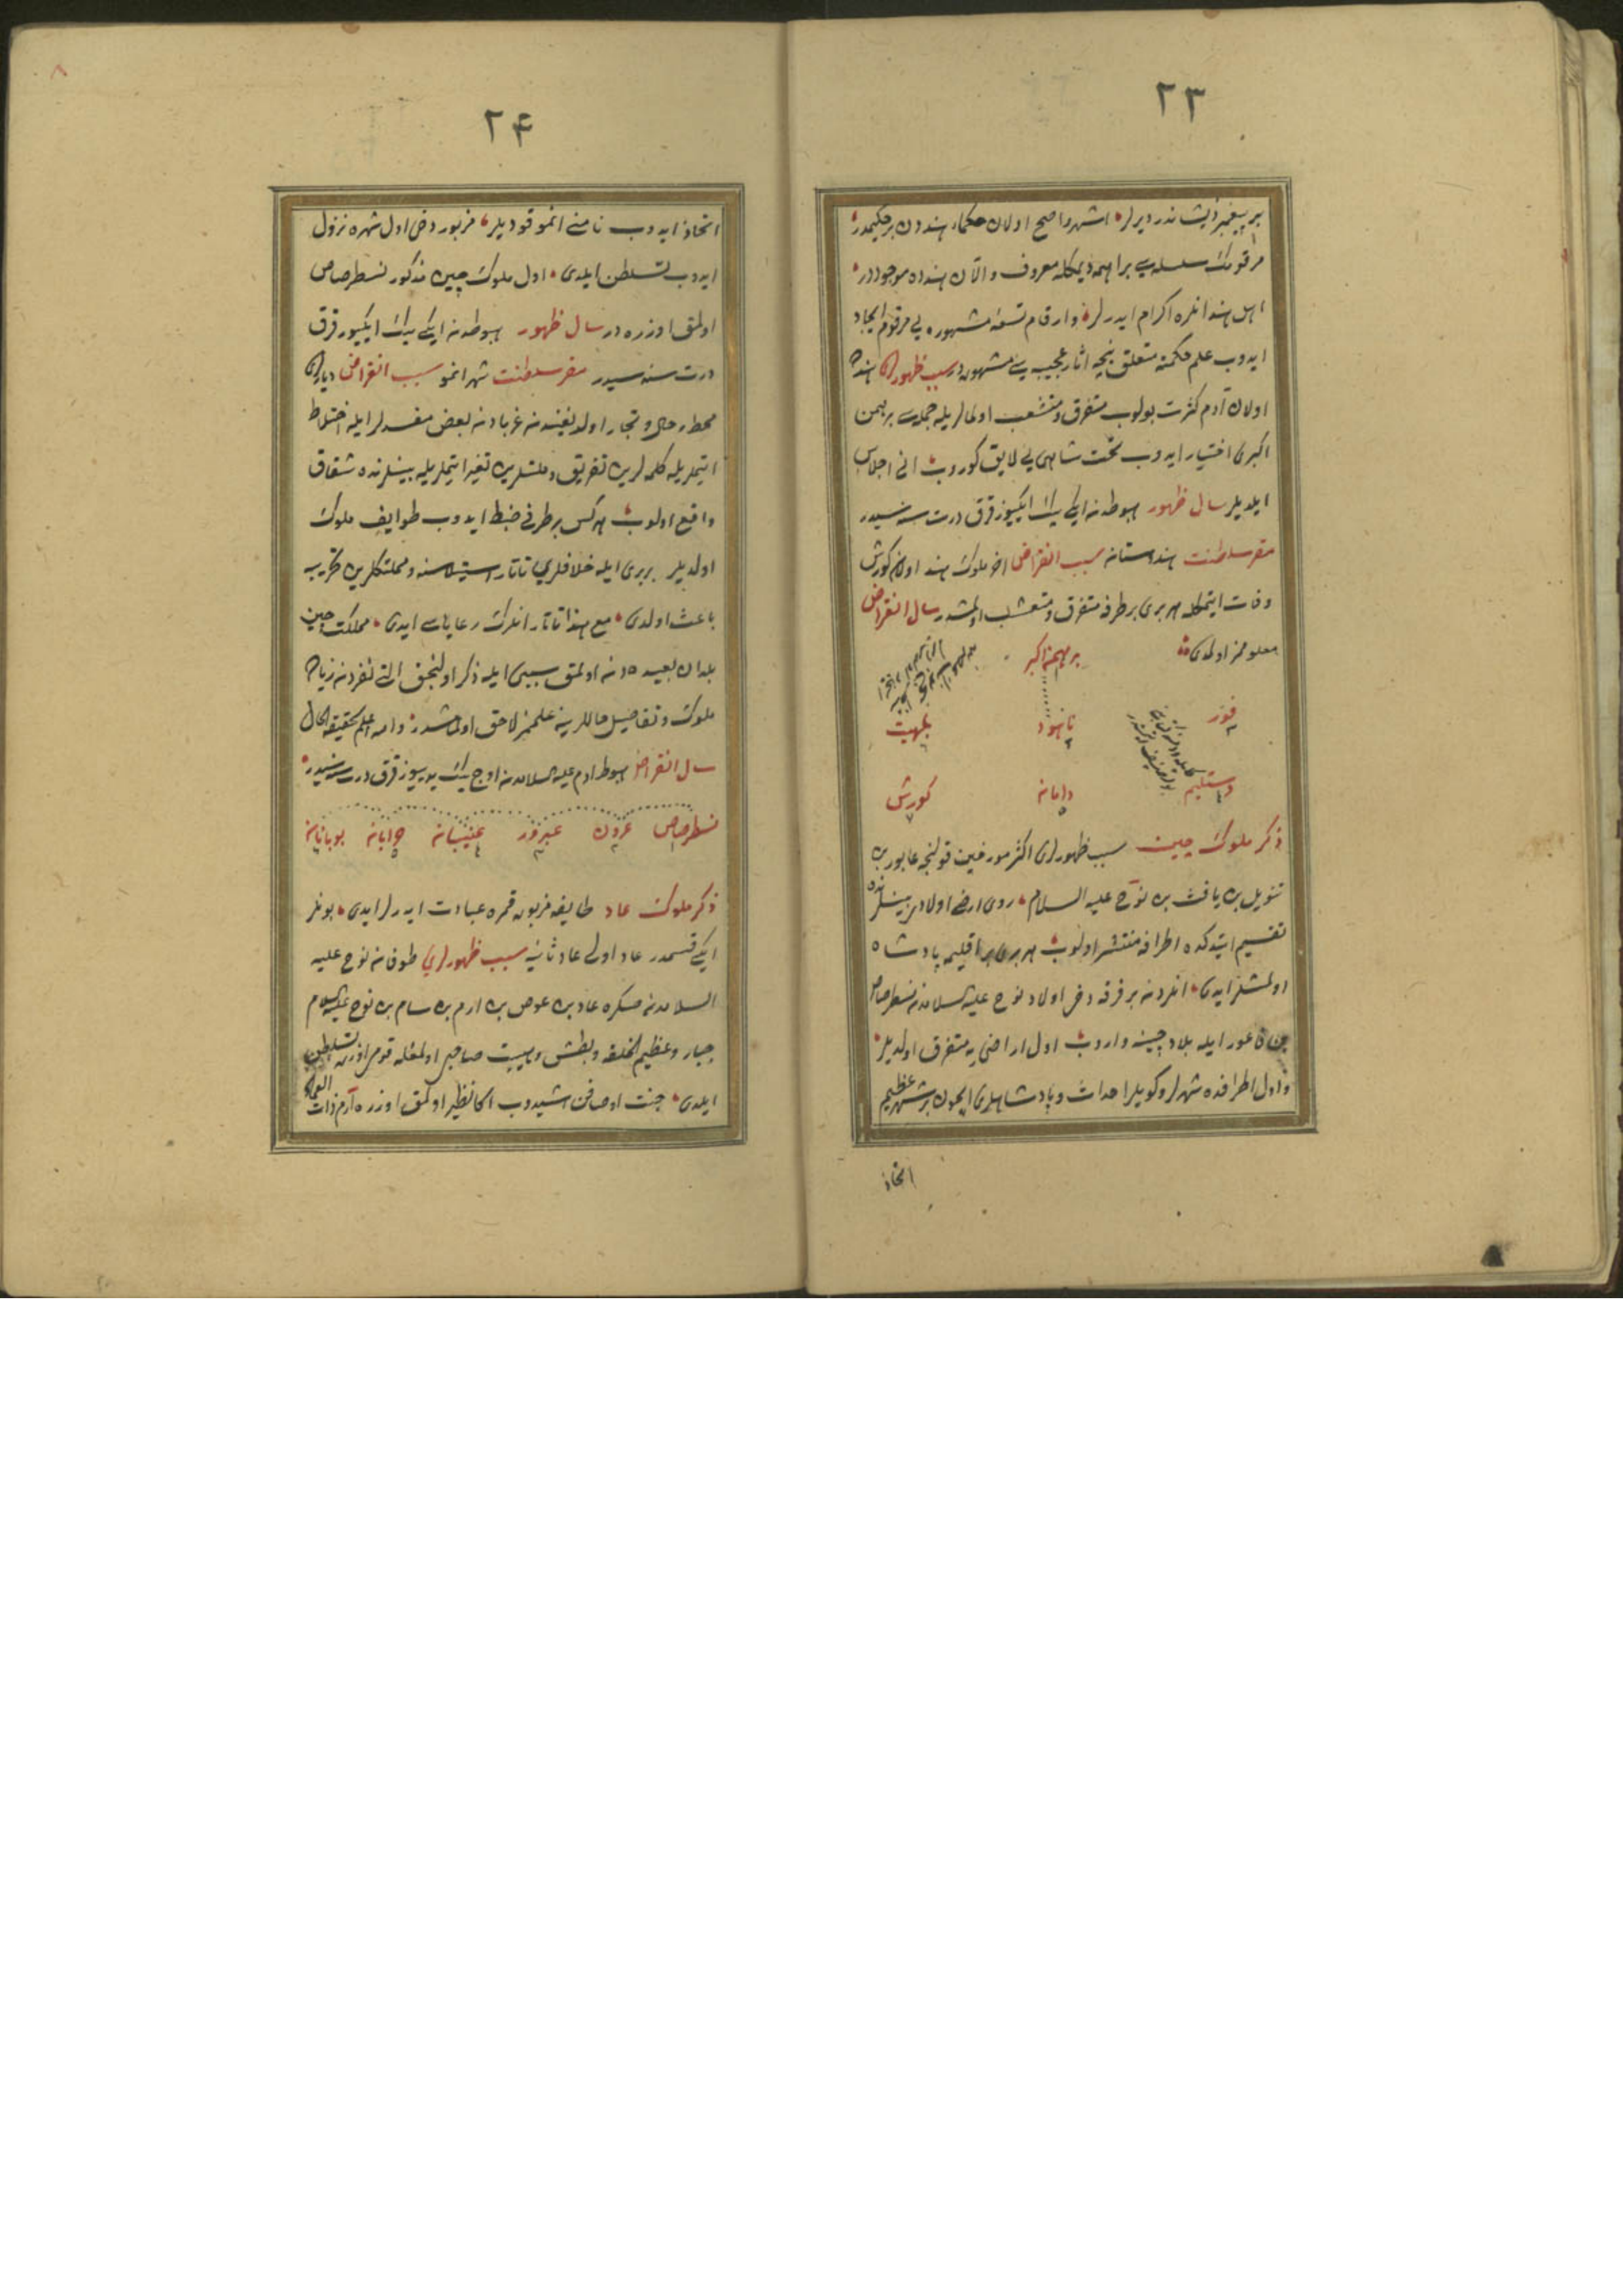 ٢٣
بر پیغمبر ذیشاندر دیرلر اشهر واصح اولان حکماء هنددن بر حکیمدر
مرقومك سلسله سی براهمه دیمکله معروف و الآن هندده موجوددر
اهل هند انلره اکرام ایدرلر وارقام تسعهٔ مشهوره یی مرقوم ایجاد
ایدوب علم حکمته متعلق نیجه اثار عجیبه سی مشهوددر سبب ظهور هندده
اولان آدم کثرت بولوب متفرق و متشعب اولمالریله جمله سی برهمن
اکبری اختیار ایدوب تخت شاهی یی لایق کوروب انی اجلاس
ایلدیلر سال ظهور هبوطدنه ایکی بیك ایکیوز قرق درت سنه سیدر
مقر سلطنت هندستانه سبب انقراض اخر ملوك هند اولان کورش
وفات ایتمکله هر بری بر طرفه متفرق و متشعب اولمشدر سال انقراض
معلومز اولمدی
برهمن اکبر
فور
ناهود
بلهیت
دستلیم
دامانه
کورش
ذکر ملوك چین سبب ظهورلری اکثر مورخین قولنجه عابور بن
تنویل بن یافث بن نوح علیه السلام روی ارضی اولادی بینلرنده
تقسیم ایتدکده اطرافه منتشر اولوب هر بری بر اقلیمه پادشاه
اولمشلر ایدی انلردنه بر فرقه دخی اولاد نوح علیه السلامدنه نسطرصاص
بن فاعور ایله بلاد چینه واروب اول اراضی یه متفرق اولدیلر
و اول اطرافده شهرلر و کویلر احداث و پادشاهلری ایچون بر شهر عظیم
اتخاذ
٢۴
اتخاذ ایدوب نامنی انمو قودیلر مزبور دخی اول شهره نزول
ایدوب تسلطن ایلدی اول ملوك چین مذکور نسطرصاص
اولمق اوزره در سال ظهور هبوطدنه ایکی بیك ایکیوز قرق
درت سنه سیدر مقر سلطنت شهر انمو سبب انقراض دیارلری
محط رحال و تجار اولدیغندنه غربادنه بعض مفسدلر ایله اختلاط
ایتمریله کلمه لرین تفریق و ملتلرین تغیر ایتملریله بینلرنده شقاق
واقع اولوب هرکس بر طرفی ضبط ایدوب طوایف ملوك
اولدیلر بربری ایله خلافلری تاتار استیلاسنه و مملکتلرین تخریبه
باعث اولدی مع هذا تاتار انلرك رعایاسی ایدی مملکت چین
بلدان بعیده دنه اولمق سببی ایله ذکر اولنجق التی نفردنه زیاده
ملوك و تفاصیل حاللرینه علممز لاحق اولمامشدر والله اعلم بحقیقة الحال
سال انقراض هبوط ادم علیه السلامدنه اوچ بیك یدییوز قرق درت سنه سیدر
نسطرصاص عرون عبرور عنیبانه
ذکر ملوك عاد طایفهٔ مزبوره قمره عبادت ایدرلر ایدی بونلر
ایکی قسمدر عاد اولی عاد ثانیه سبب ظهورلری طوفانه نوح علیه
السلامدنه صکره عاد بن عوص بن ارم بن سام بن نوح علیه السلام
جبار و عظیم الخلقه و بطش و هیبت صاحبی اولمغله قومی اوزرینه تسلطن
ایلدی جنت اوصافن اشیدوب اکا نظیر اولمق اوزره ارم ذات العماد